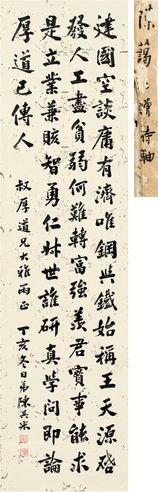 陳藹士贈詩軸
建國空談庸有濟唯鋼與鐵始稱王天源啓
發人工盡貧弱何難轉富強羨君實事能求
是立業兼賅智勇仁世誰研真學問即論
厚道已傳人
叔厚道兄大雅兩正
丁亥冬日弟陳其采